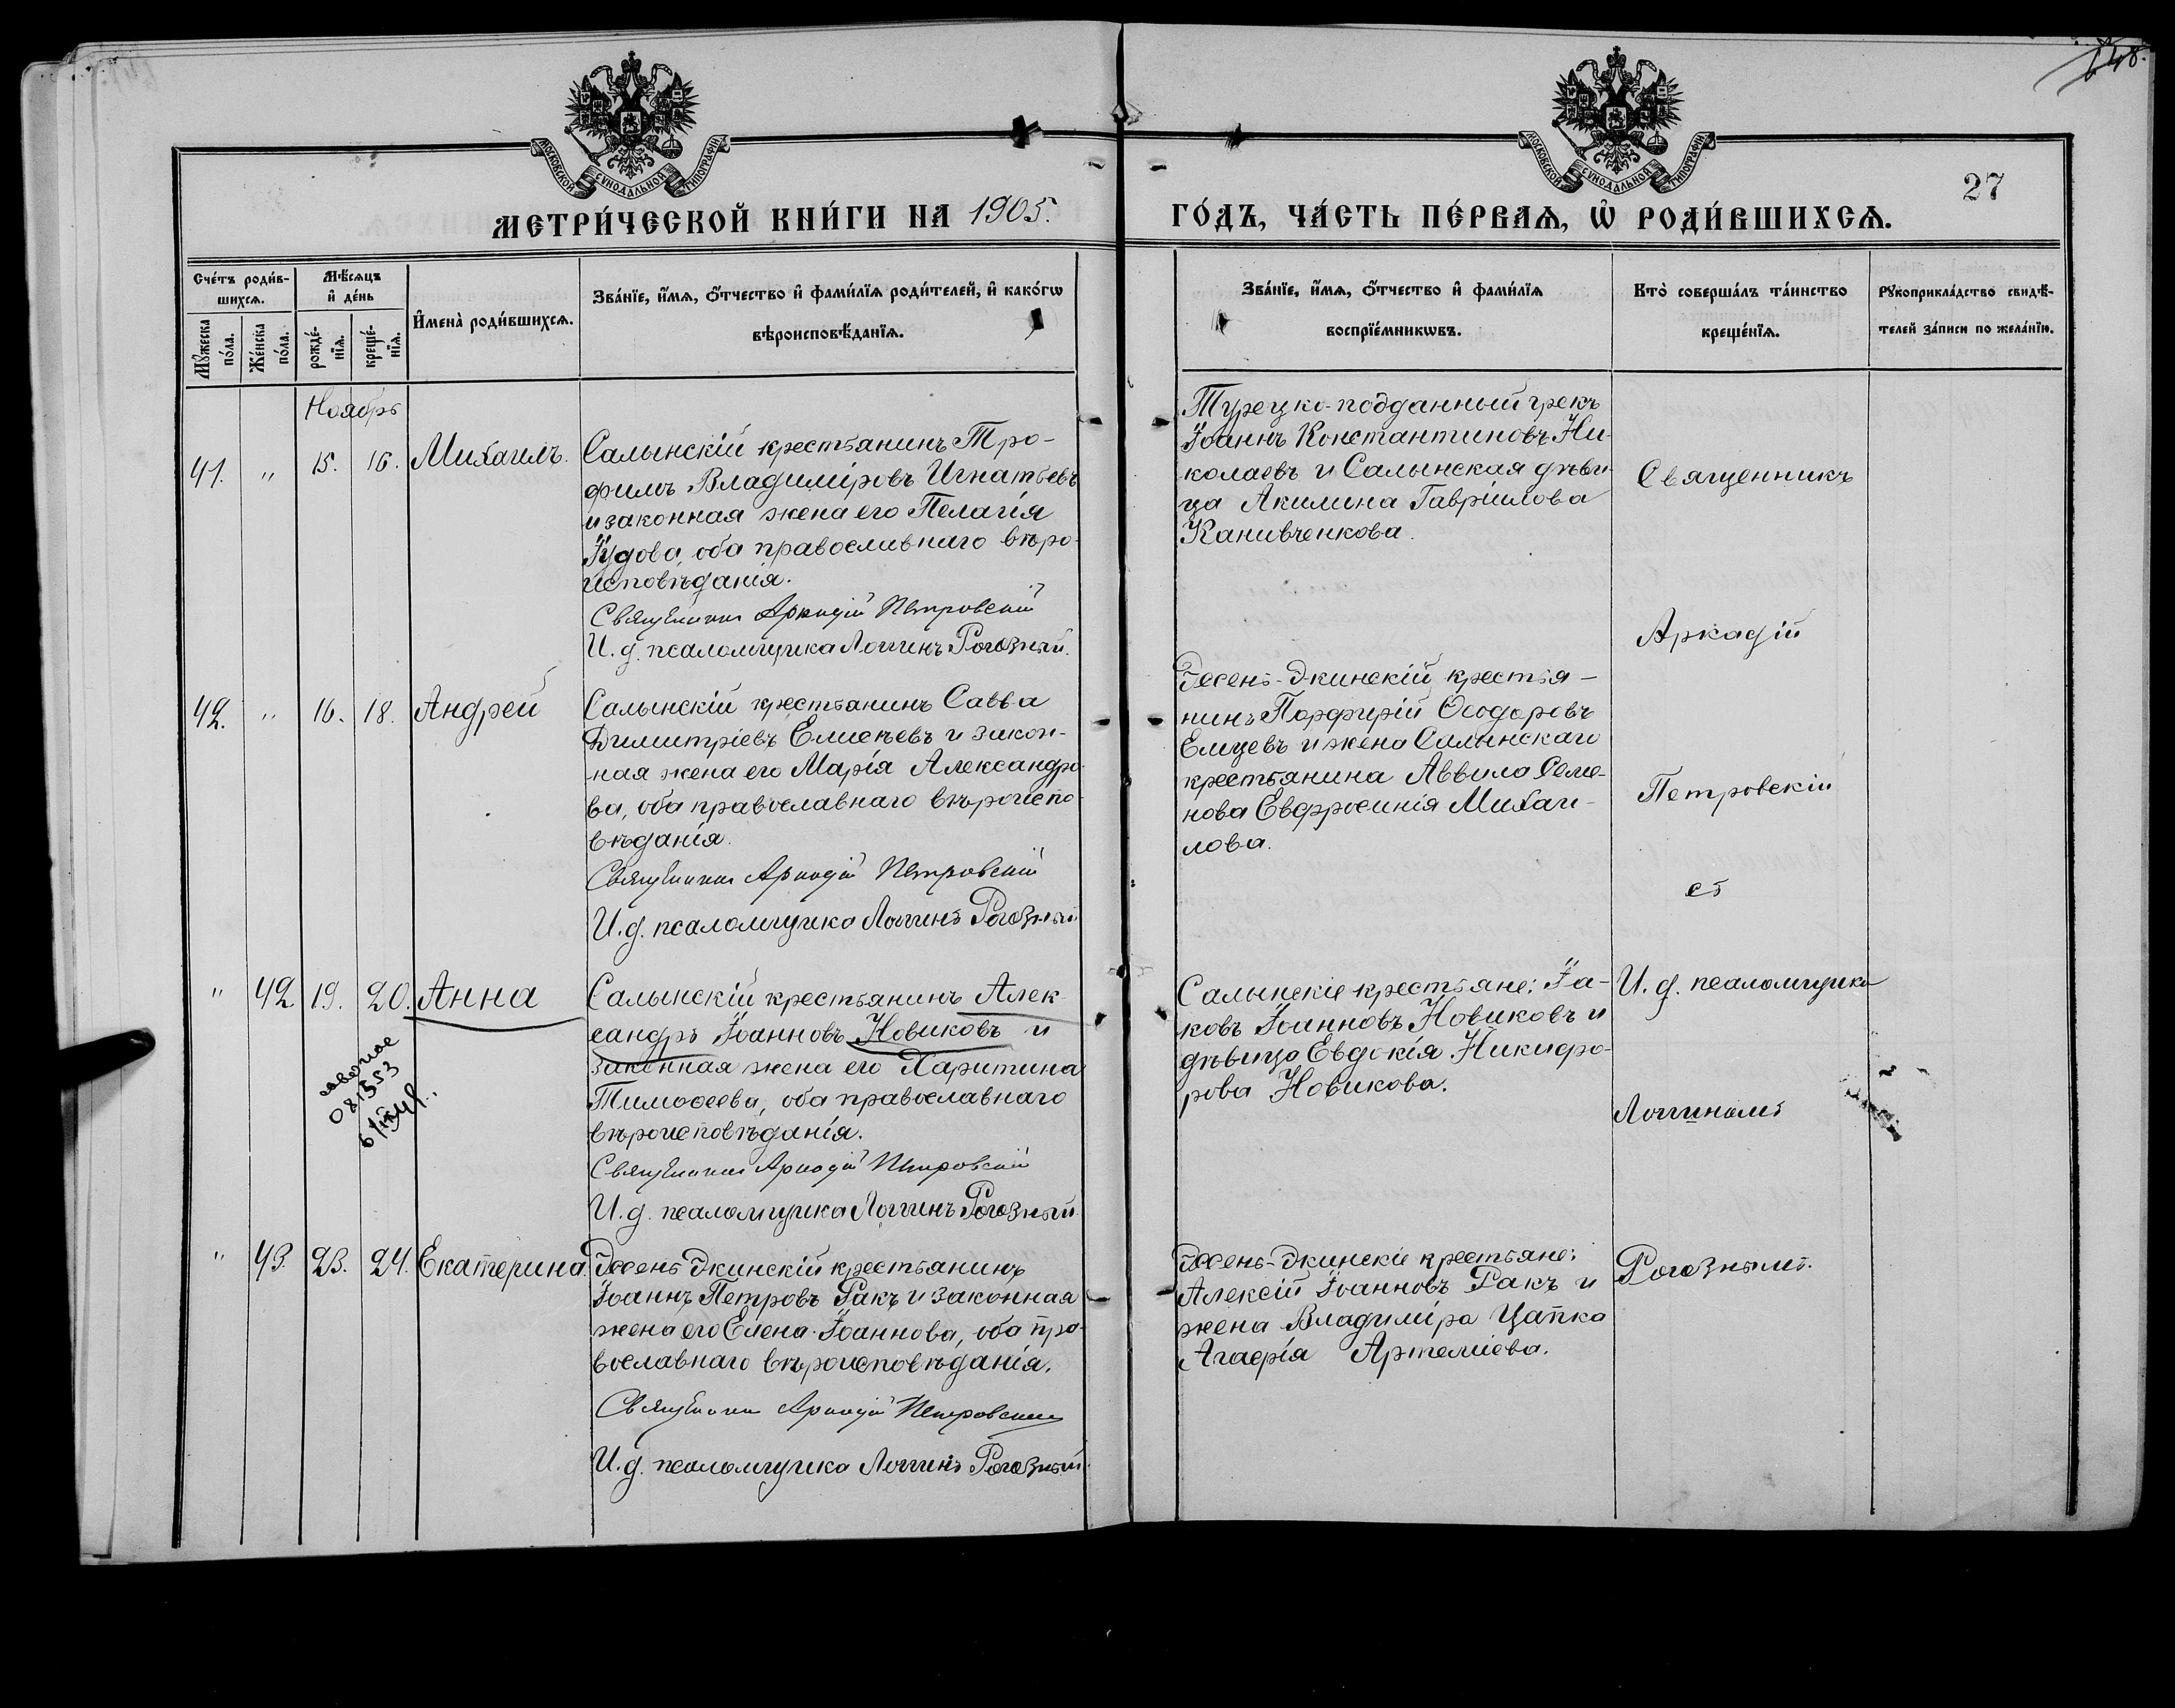 148.
МОСКОВСКОЙ СѴНОДАЛЬНОЙ ТИПОГРАФІИ
МОСКОВСКОЙ СѴНОДАЛЬНОЙ ТИПОГРАФІИ
27
МЕТРИ́ЧЕСКОЙ КНИ́ГИ НА 1905.
ГО́ДЪ, ЧА́СТЬ ПЕ́РВАѦ, Ѽ РОДИ́ВШИХСѦ.
Сче́тъ роди́в-
шихсѧ.
Мꙋ́жеска по́ла.
Же́нска по́ла.
Мѣ́сѧцъ
и҆ де́нь
рожде́-
нїѧ.
креще́-
нїѧ.
И҆мена̀ роди́вшихсѧ.
Зва́нїе, и҆́мѧ, ѻ҆́тчество и҆ фами́лїѧ роди́телей, и҆ како́гѡ
вѣроисповѣ́данїѧ.
Зва́нїе, и҆́мѧ, ѻ҆́тчество и҆ фами́лїѧ
воспрїе́мникѡвъ.
Кто̀ соверша́лъ та́инство
креще́нїѧ.
Рꙋкоприкла́дство свидѣ́-
телей за́писи по жела́нїю.
Ноябрь
41. " 15. 16. Михаилъ.
Салынскій крестьянинъ Тро-
фимъ Владиміровъ Игнатьевъ
и законная жена его Пелагія
Іудова, оба православнаго вѣро-
исповѣданія.
Священникъ Аркадій Петровскій
И.д. псаломщика Логгинъ Рогозный.
Турецко-подданный грекъ
Іоаннъ Константиновъ Ни-
колаевъ и Салынская дѣви-
ца Акилина Гавріилова
Канивченкова.
Священникъ
Аркадій
42. " 16. 18. Андрей
Салынскій крестьянинъ Савва
Димитріевъ Елисѣевъ и закон-
ная жена его Марія Александро-
ва, оба православнаго вѣроиспо-
вѣданія.
Священникъ Аркадій Петровскій
И.д. псаломщика Логгинъ Рогозный
-Экинскій крестья-
нинъ Порфирій Ѳеодоровъ
Елицевъ и жена Салынскаго
крестьянина Аввила Семе-
нова Евфросинія Михаи-
лова.
Петровскій
съ
" 42 19. 20. Анна
08.1553
Салынскій крестьянинъ Алек-
сандръ Іоанновъ Новиковъ и
законная жена его Харитина
Тимоѳеева, оба православнаго
вѣроисповѣданія.
Священникъ Аркадій Петровскій
И.д. псаломщика Логгинъ Рогозный
Салынскіе крестьяне: Іа-
ковъ Іоанновъ Новиковъ и
дѣвица Евдокія Никифо-
рова Новикова.
И.д. псаломщика
Логгиномъ
" 43. 23. 24. Екатерина.
Экинскій крестьянинъ
Іоаннъ Петровъ Ракъ и законная
жена его Елена Іоаннова, оба пра-
вославнаго вѣроисповѣданія.
Священникъ Аркадій Петровскій
И.д. псаломщика Логгинъ Рогозный.
-Экинскіе крестьяне:
Алексій Іоанновъ Ракъ и
жена Владиміра Цапка
Агаѳія Артеміева.
Рогознымъ.